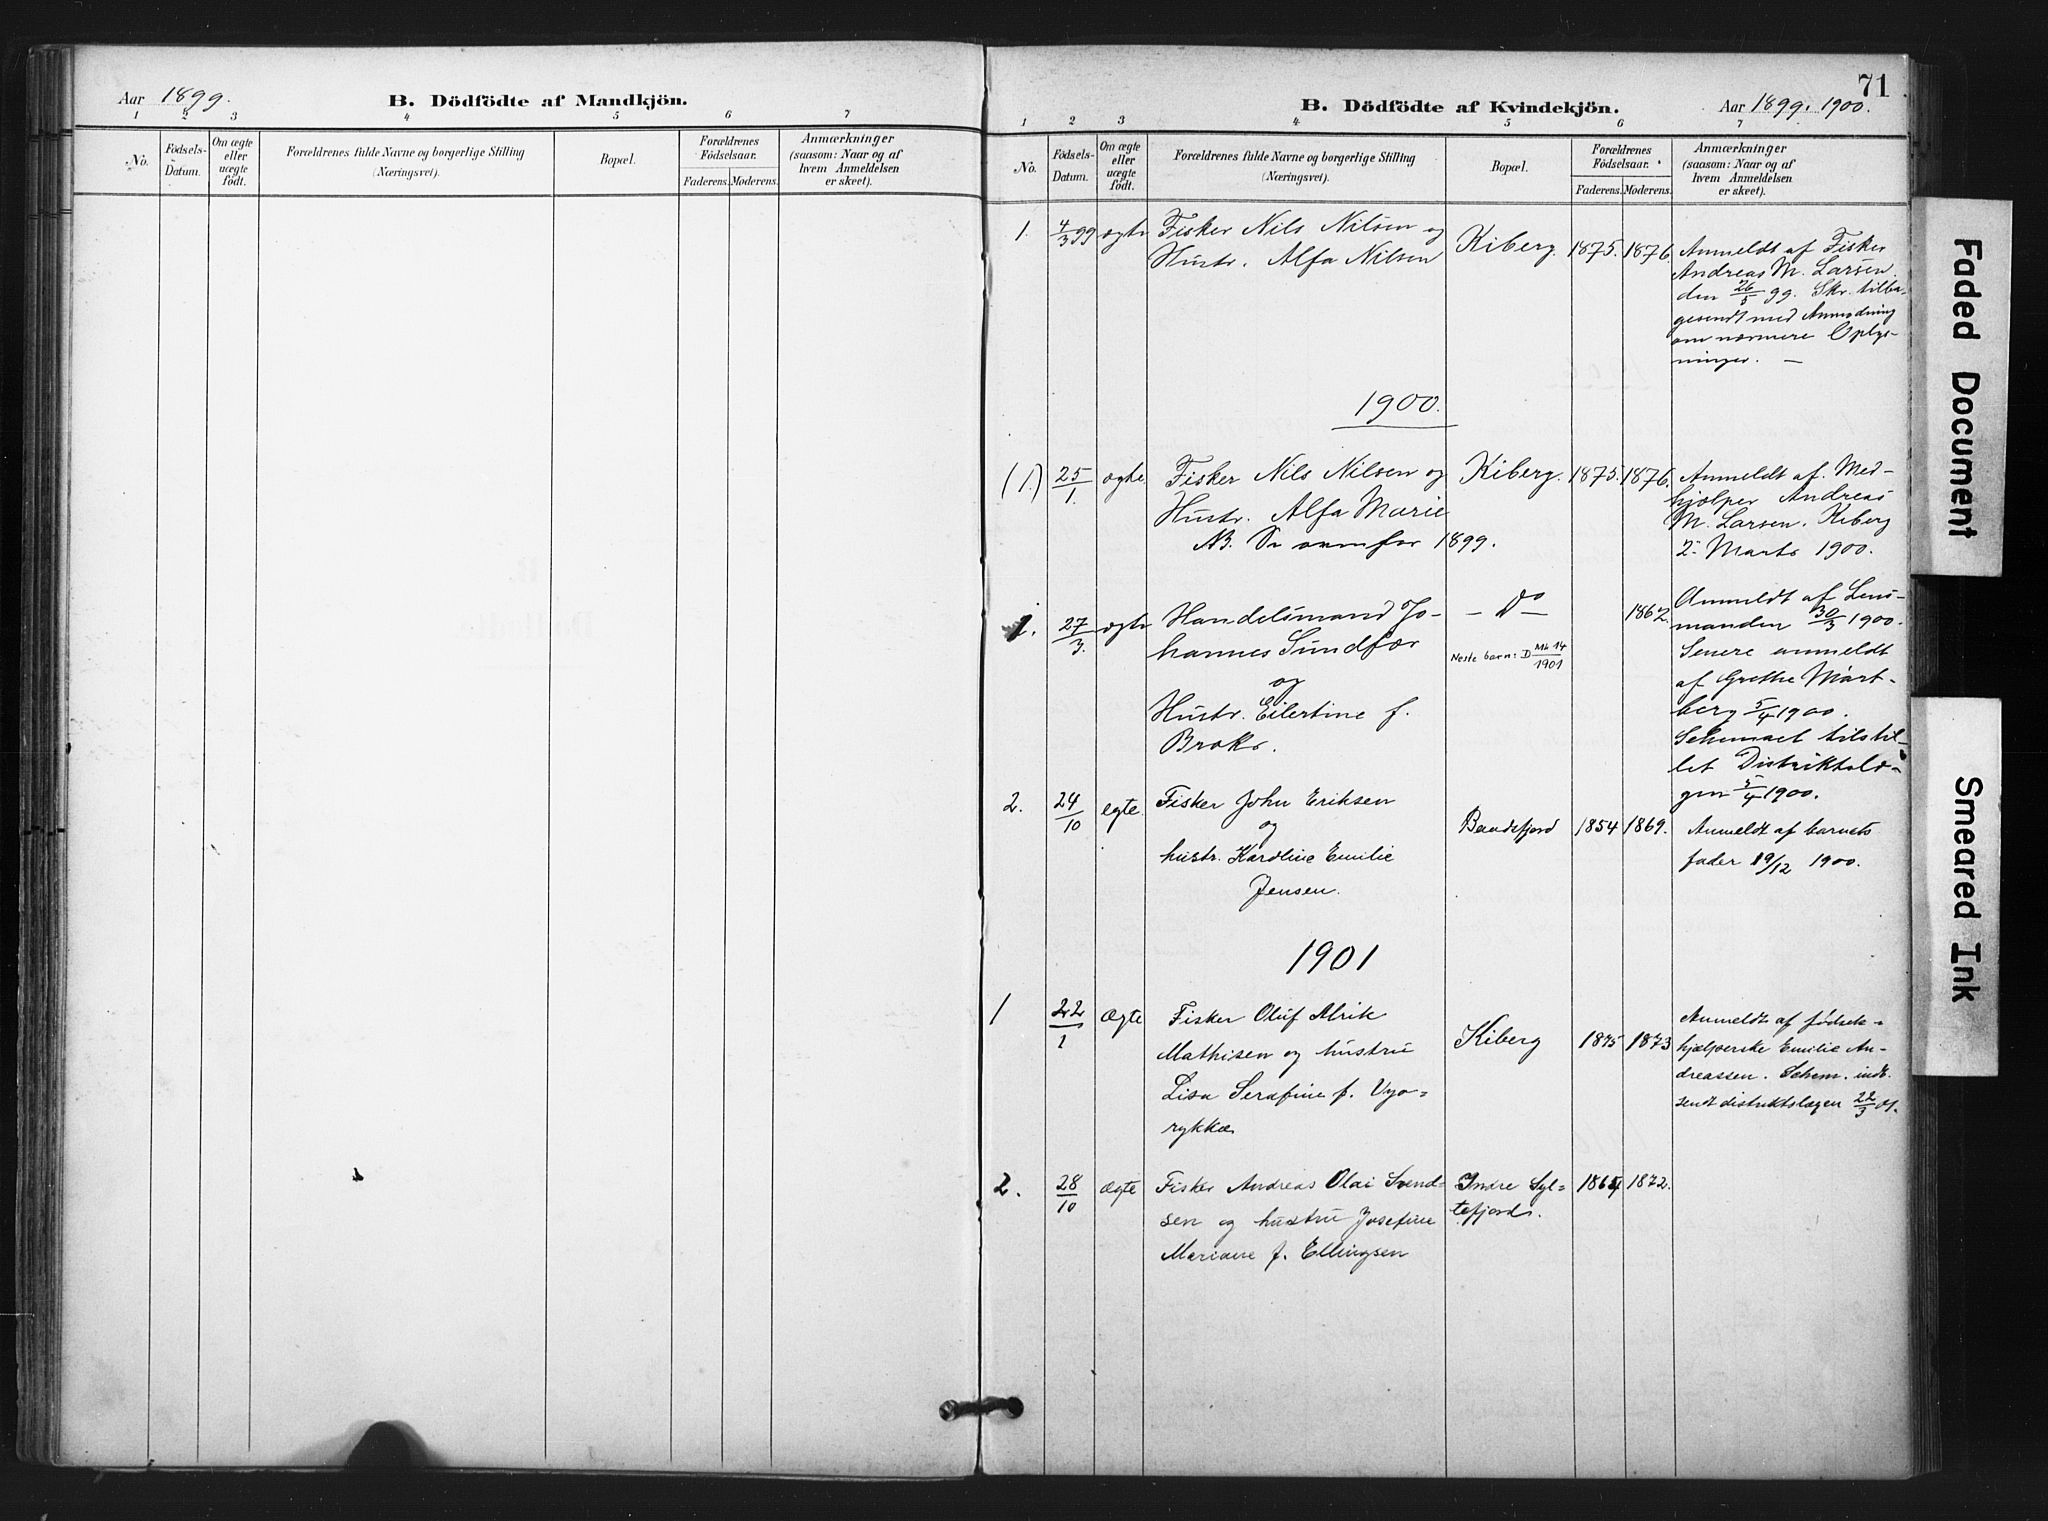 Aar 1899.
B. Dödfödte af Mandkjön.
1 2 3 4 5 6 7
No.
Födsels-
Datum.
Om ægte
eller
uægte
födt.
Forældrenes fulde Navne og borgerlige Stilling
(Næringsvei).
Bopæl.
Forældrenes
Födselsaar.
Faderens. Moderens.
Anmærkninger
(saasom: Naar og af
hvem Anmeldelsen
er skeet).
71
B. Dödfödte af Kvindekjön.
Aar 1899. 1900.
1 2 3 4 5 6 7
No.
Födsels-
Datum.
Om ægte
eller
uægte
födt.
Forældrenes fulde Navne og borgerlige Stilling
(Næringsvei).
Bopæl.
Forældrenes
Födselsaar.
Faderens. Moderens.
Anmærkninger
(saasom: Naar og af
hvem Anmeldelsen
er skeet).
1. 4/3 99 ægte
Fisker Nils Nilsen og
Hustr. Alfa Nilsen
Kiberg. 1875. 1876.
Anmeldt af Fisker
Andreas M. Larsen.
den 26/5 99. Skr. tilba-
gesendt med Anmodning
om nærmere Oplys-
ninger. —
1900.
(1.) 25/1. ægte
Fisker Nils Nilsen og
Hustr. Alfa Marie
NB. Se ovenfor 1899.
Kiberg. 1875. 1876.
Anmeldt af Med-
hjælper Andreas
M. Larsen, Kiberg
2. Marts 1900.
1. 27/3. ægte
Handelsmand Jo-
hannes Sundfær
og
Hustr. Eilertine f.
Broks.
— Do —
Neste barn: D Mk 14/1901
1862.
Anmeldt af Lens-
manden 30/3 1900.
Senere anmeldt
af Grethe Mort-
berg 5/4 1900.
Schemaet tilstil-
let Distriktslæ-
gen 5/4 1900.
2. 24/10 egte
Fisker John Eriksen
og
hustr. Karoline Emilie
Jensen.
Baadsfjord 1854 1869.
Anmeldt af barnets
fader 19/12 1900.
1901
1 22/1 ægte
Fisker Oluf Alrik
Mathisen og hustru
Lisa Serafine f. Vyo-
rykkæ
Kiberg 1875 1873
Anmeldt af fødsels-
hjælperske Emilie An-
dreassen. Schem. ind-
sendt distriktslægen 22/3 01.
2. 28/10 ægte
Fisker Andreas Olai Svend-
sen og hustru Josefine
Mariane f. Ellingsen
Indre Syl-
tefjord.
1864 1872.
Faded Document
Smeared Ink